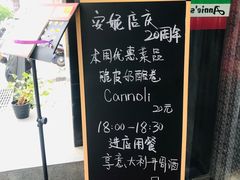 安妮店庆
20周年
本周优惠菜品
脆皮奶酪卷
Cannoli
20元
18:00-18:30
进店用餐
享意大利开胃酒
Annie's